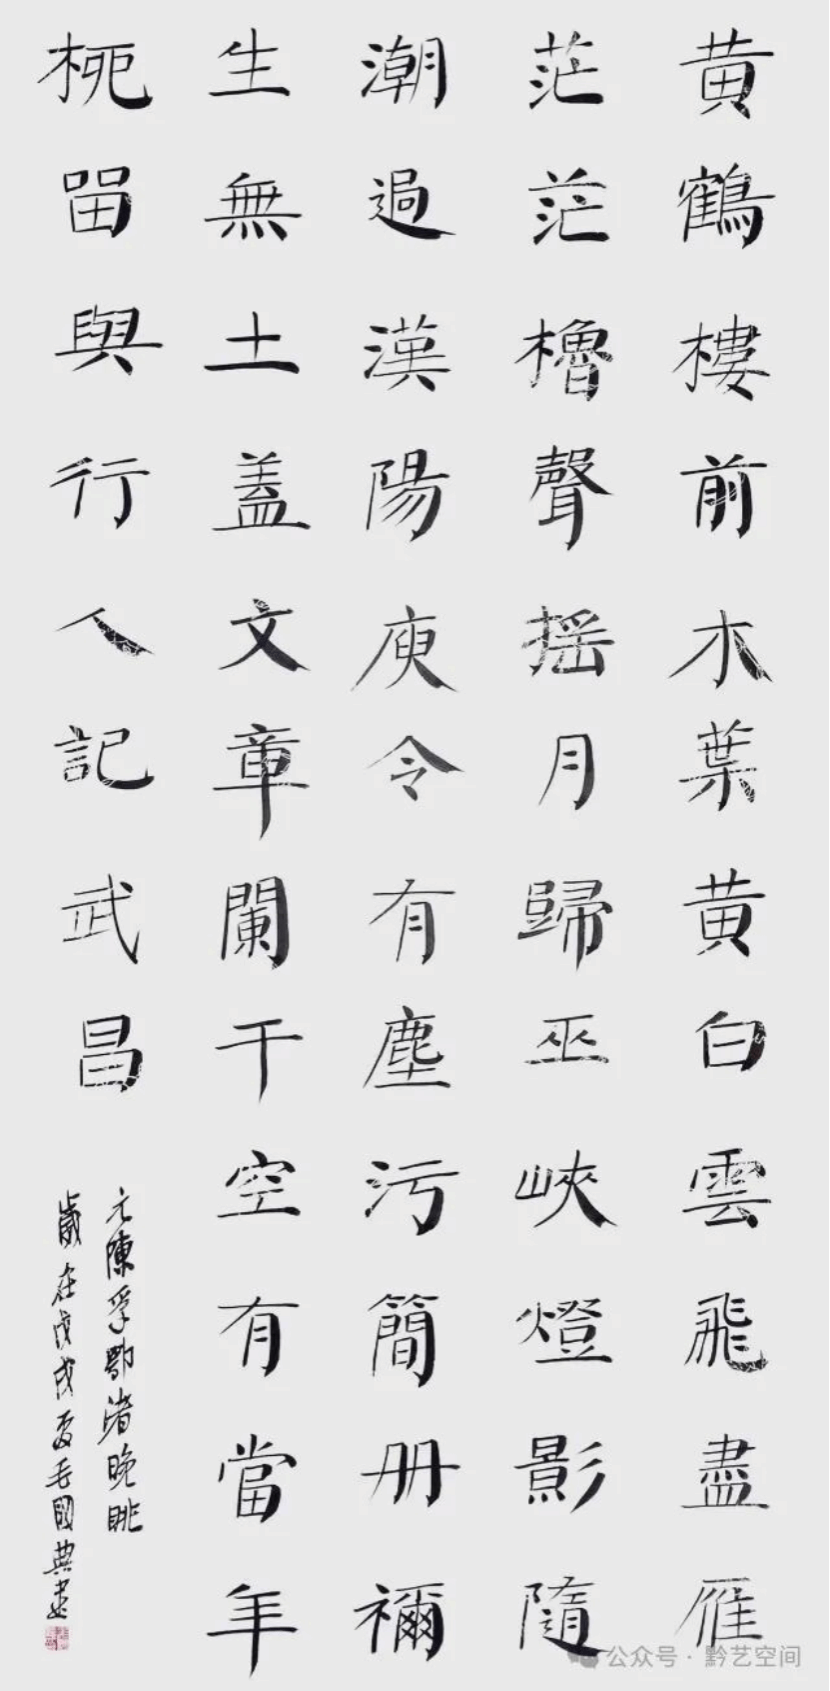 黄鶴樓前木葉黄白雲飛盡雁
茫茫櫓聲摇月歸巫峽燈影隨
潮過漢陽庾令有塵污簡册禰
生無土蓋文章闌干空有當年
柳留與行人記武昌
元陳孚鄂渚晚眺
歲在戊戌夏毛國典書
公众号 · 黔艺空间